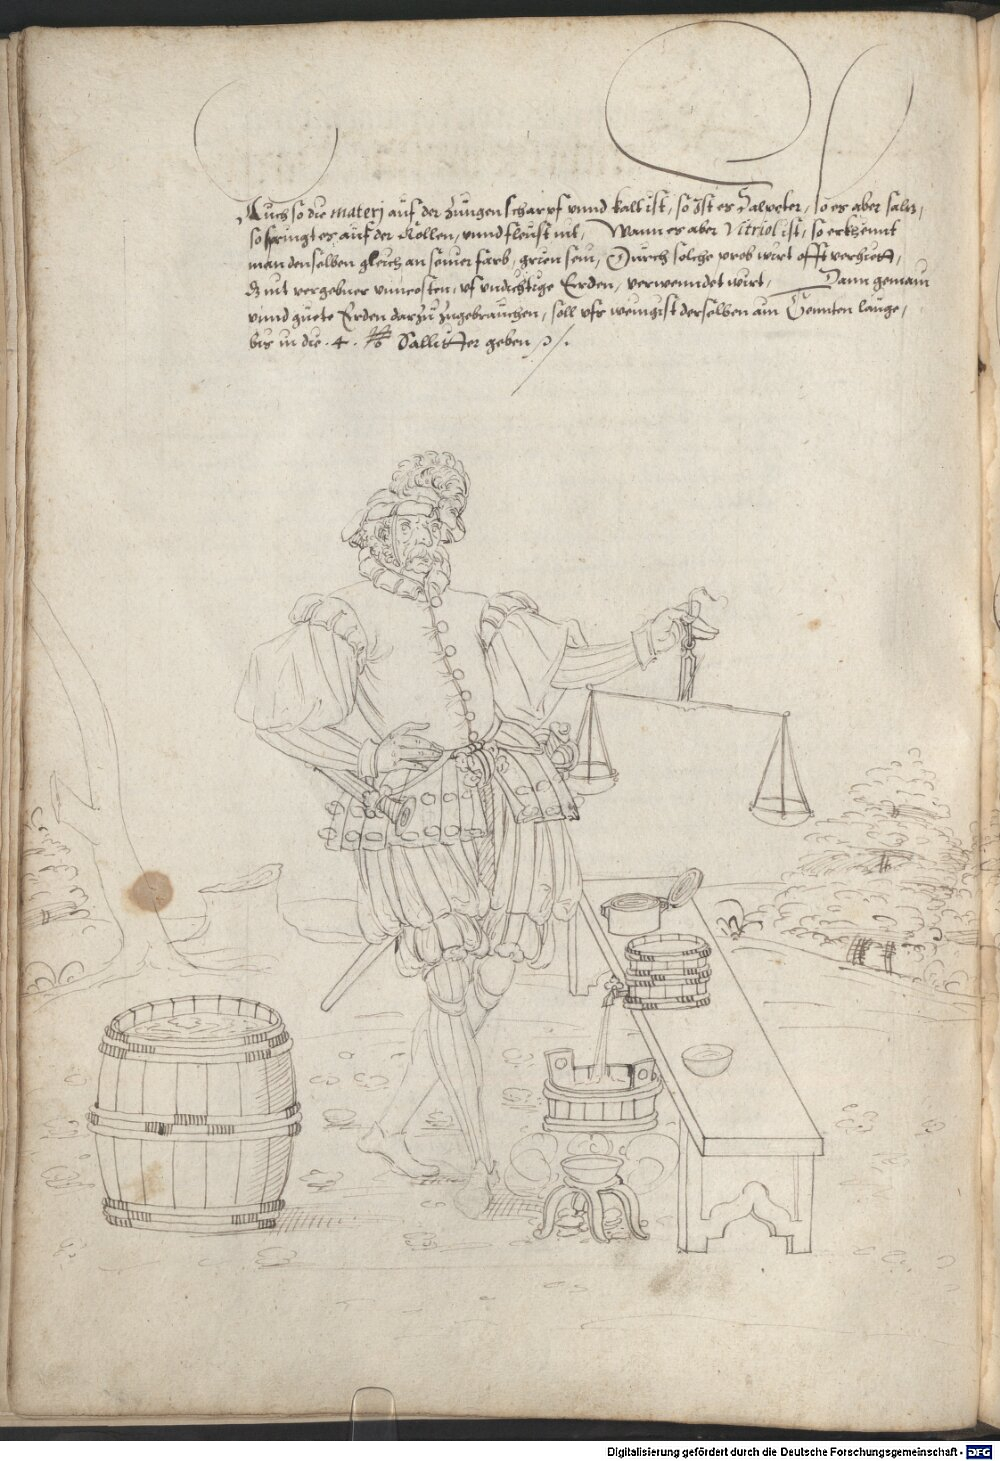 Auch so die materj auf der Zungen scharpf unnd kalt ist, so Ist es Salpeter, so es aber saltz,
so springt es auf der Kollen, unnd fleust nit, Wann es aber Vitriol ist, so erkhennt
man denselben gleich an seiner farb, grien sein, Durch solche prob wirt offt verhuett,
dz nit vergebner unncosten, uf undichtige Erden, verwenndet wirt, Dann gemain
unnd guete Erden darzu zugebrauchen, soll ufs wenigist derselben ain Zennten lauge,
bis in die .4. lb Sallitter geben
Digitalisierung gefördert durch die Deutsche Forschungsgemeinschaft - DFG